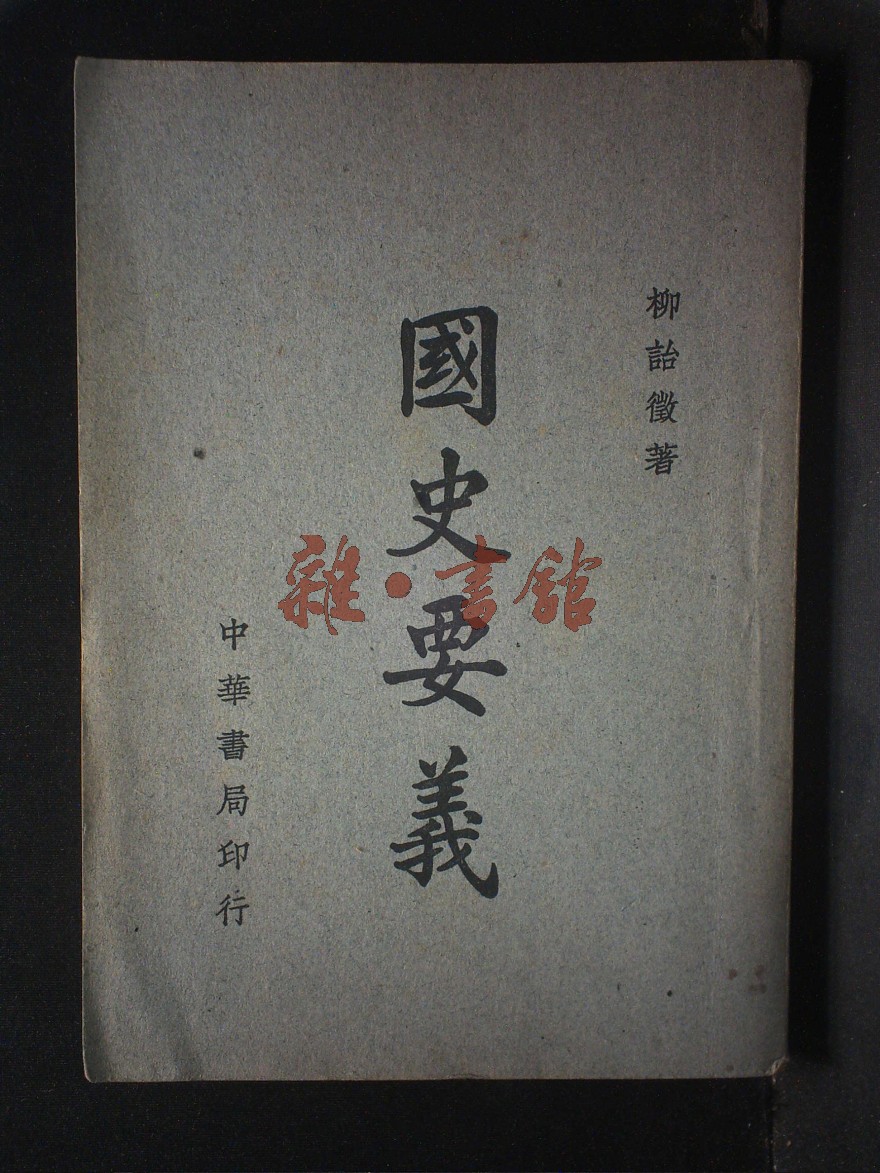 柳詒徵著
國史要義
中華書局印行
雜·書舘